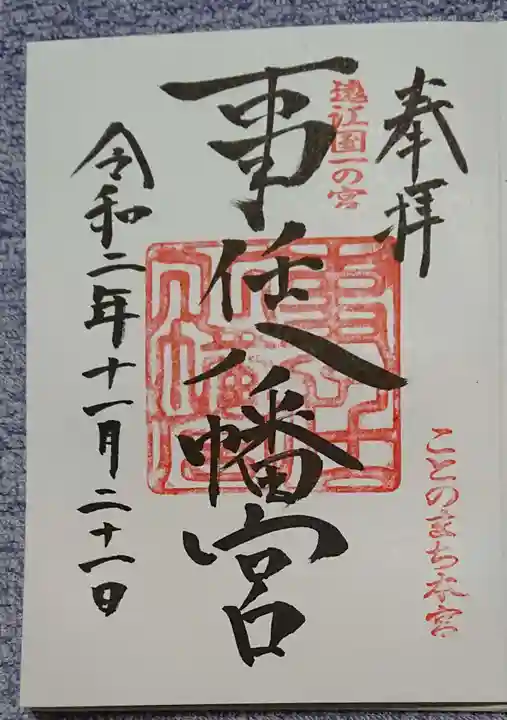 奉拝
遠江国一の宮
ことのまち本宮
事任八幡宮
令和二年十一月二十一日